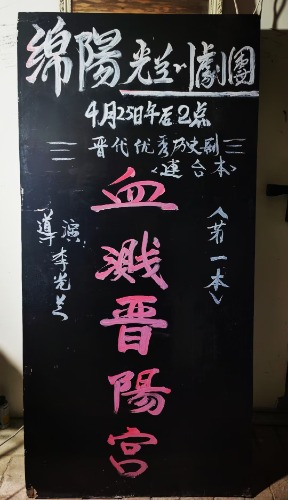 绵陽光兰川劇團
4月25日午后2点
晋代优秀历史剧
<連台本>
血溅晋陽宮
<第一本>
導演 李光兰